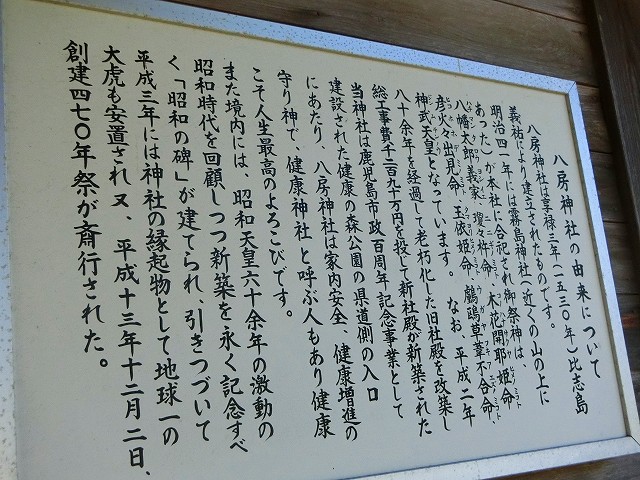 八房神社の由来について
八房神社は享禄三年(一五三〇年)比志島
義祐により建立されたものです。
明治四一年には霧島神社(近くの山の上に
あった)が本社に合祀され御祭神は、
八幡太郎義家、瓊々杵命、木花開耶姫命、
彦火々出見命、玉依姫命、鸕鷀草葺不合命、
神武天皇となっています。 なお、平成二年
八十余年を経過して老朽化した旧社殿を改築し
総工事費千二百九十万円を投じて新社殿が新築された
当神社は鹿児島市政百周年記念事業として
建設された健康の森公園の県道側の入口
にあたり、八房神社は家内安全、健康増進の
守り神で、健康神社と呼ぶ人もあり健康
こそ人生最高のよろこびです。
また境内には、昭和天皇六十余年の激動の
昭和時代を回顧しつつ新築を永く記念すべ
く「昭和の碑」が建てられ、引きつづいて
平成三年には神社の縁起物として地球一の
大虎も安置され又、平成十三年十二月二日、
創建四七〇年祭が斎行された。